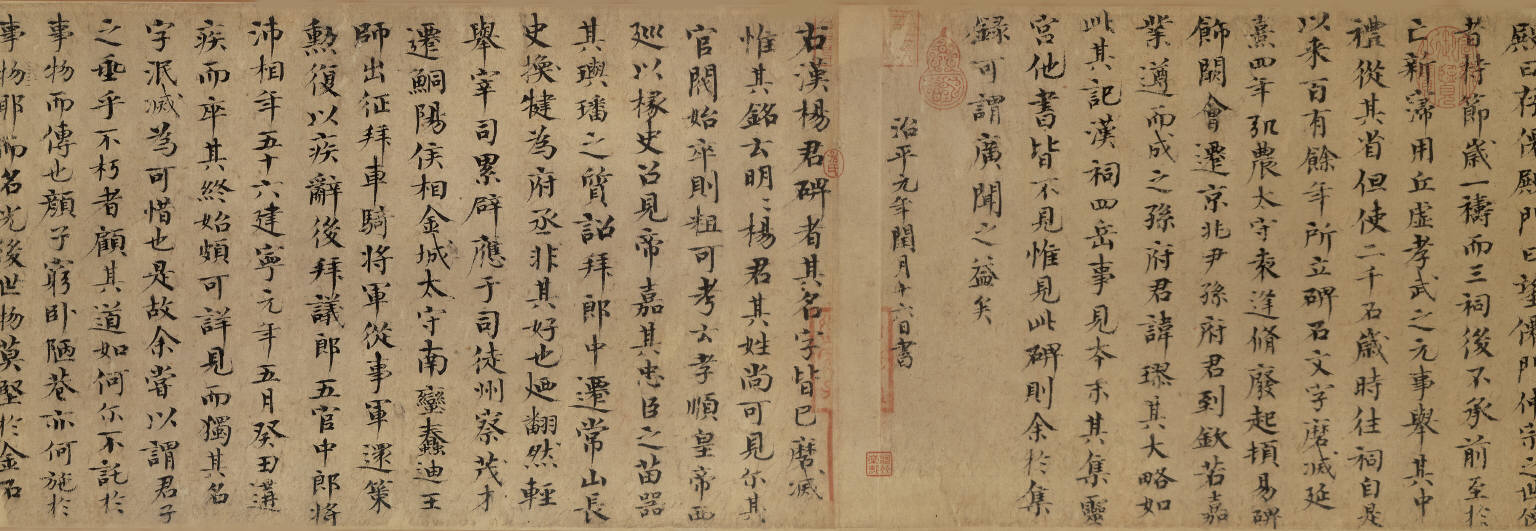 殿曰存僊殿門曰望僊門仲宗之世使
者持節歲一禱而三祠後不承前至於
亡新寖用丘虛孝武之元事舉其中
禮從其省但使二千石歲時往祠自是
以来百有餘年所立碑石文字磨滅延
熹四年弘農太守袁逢脩廢起頓易碑
飾闕會遷京兆尹孫府君到欽若嘉
業遵而成之孫府君諱璆其大略如
此其記漢祠四岳事見本末其集靈
宮他書皆不見惟見此碑則余於集
録可謂廣聞之益矣
治平元年閏月十六日書
右漢楊君碑者其名字皆已磨滅
惟其銘云明〻楊君其姓尚可見尔其
官閥始卒則粗可考云孝順皇帝西
巡以椽史召見帝嘉其忠臣之苗器
其璵璠之質詔拜郎中遷常山長
史換犍為府丞非其好也迺翻然輕
舉宰司累辟應于司徒州察茂才
遷鮦陽侯相金城太守南蠻蠢迪王
師出征拜車騎將軍從事軍還策
勳復以疾辭後拜議郎五官中郎將
沛相年五十六建寧元年五月癸丑遘
疾而卒其終始頗可詳見而獨其名
字泯滅為可惜也是故余嘗以謂君子
之垂乎不朽者顧其道如何尔不託於
事物而傳也顏子窮卧陋巷亦何施於
事物耶而名光後世物莫堅於金石